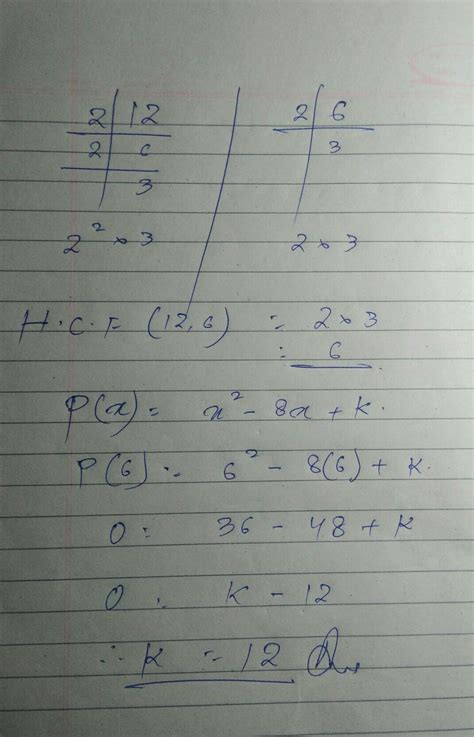 2 | 12
2 | 6
3
2² × 3
2 | 6
3
2 × 3
H.C.F (12,6) = 2 × 3
= 6
P(x) = x² - 8x + K.
P(6) = 6² - 8(6) + K.
0 = 36 - 48 + K
0 = K - 12
∴ K = 12